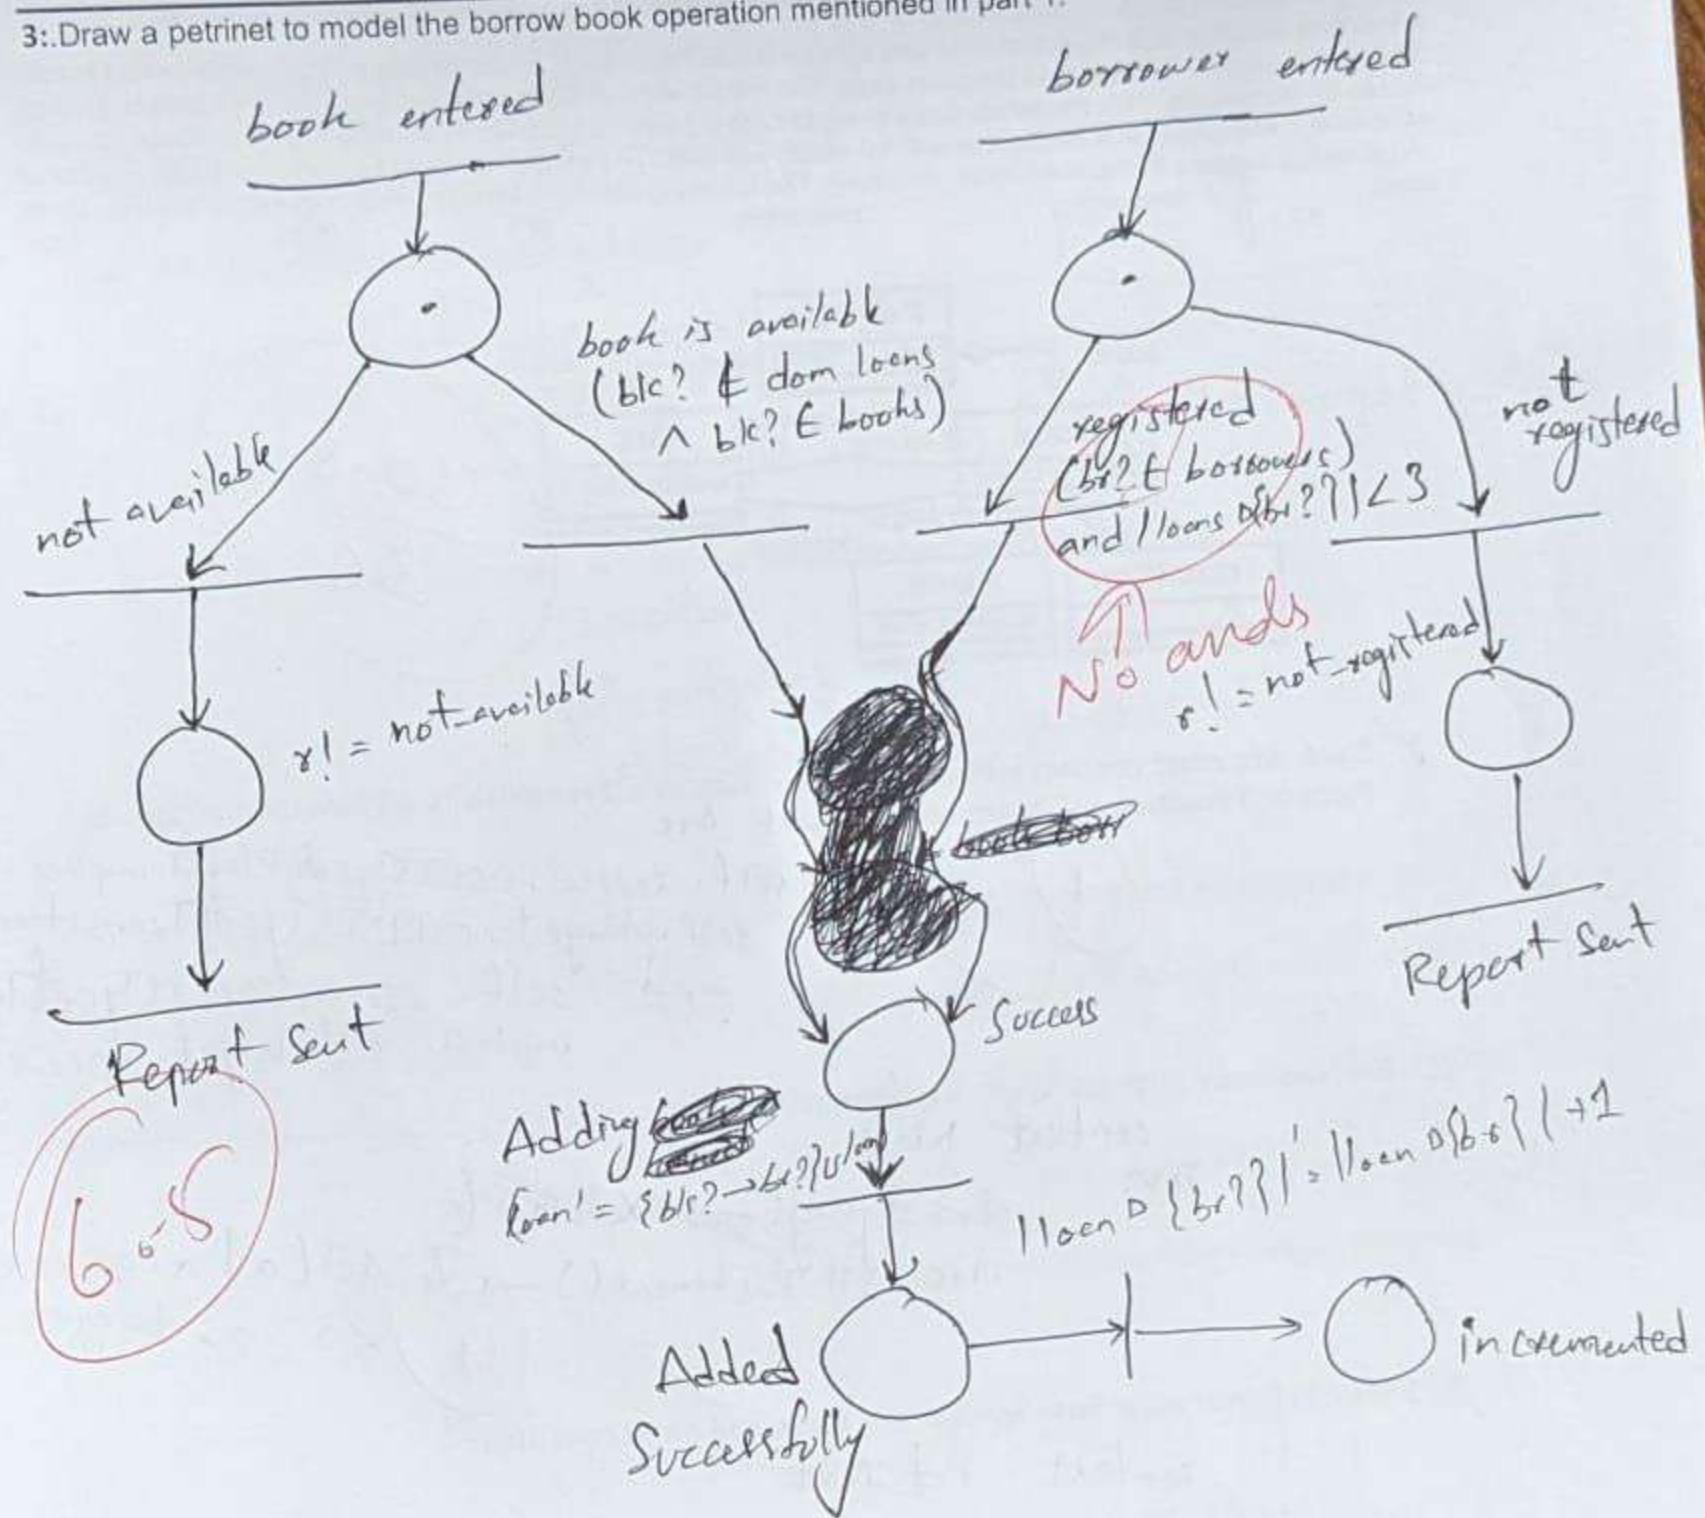 3:.Draw a petrinet to model the borrow book operation mentioned in part 1.
book entered
borrower entered
book is available
(bk? ∉ dom loans
∧ bk? ∈ books)
registered
(br? ∈ borrowers)
and |loans ▷{br?}| < 3
not
registered
not available
No ands
r! = not_available
r! = not_registered
Report Sent
Report Sent
Success
6.5
Adding
loan' = {bk?→br?}∪loan
|loan ▷ {br?}|' = |loan ▷{br}| +1
Added
Successfully
incremented